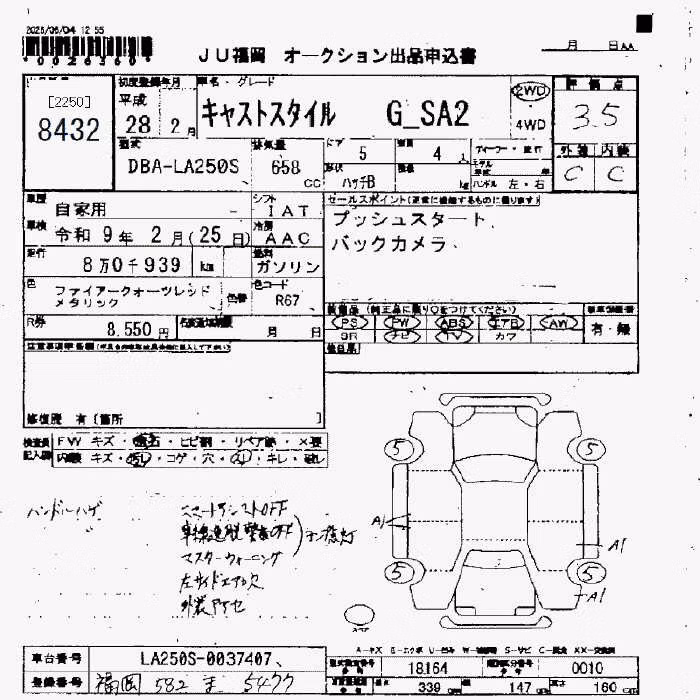 2026/06/04 12 55
*0026360*
JU福岡 オークション出品申込書
月 日
[2250]
8432
初度登録年月
平成
28 2月
車名・グレード
キャストスタイル G_SA2
2WD
4WD
評価点
3.5
外装 内装
C C
型式
DBA-LA250S
排気量
658
CC
ドア
5
4人
形状
ハッチB
kg
ハンドル 左・右
車歴
自家用
シフト
IAT
車検
令和 9年 2月(25日)
冷房
AAC
走行
8万0千939 km
燃料
ガソリン
色
ファイアークォーツレッド
メタリック
色替
色コード
R67
セールスポイント(正常に機能するものに限ります)
プッシュスタート、
バックカメラ、
装備品(純正品に限り○をつけてください)
PS PW ABS エアB AW
SR ナビ TV カワ
有・無
R券
8,550円
月 日
修復歴 有 [箇所 ]
検査員
記入欄
FW キズ・飛石・ヒビ割・リペア跡・×要
内装 キズ・汚レ・コゲ・穴・スレ・キレ・破レ
ハンドルハゲ
スマートアシストOFF
車線逸脱警報OFF
マスターウォーニング
左サイドエアロ欠
外装下キセ
5 5
A1
A1
5 5
A1
スペア
車台番号
LA250S-0037407、
登録番号
福岡 582 ま 5477
型式指定番号
18164
類別区分番号
0010
長さ 339 cm 幅 147 cm 高さ 160 cm